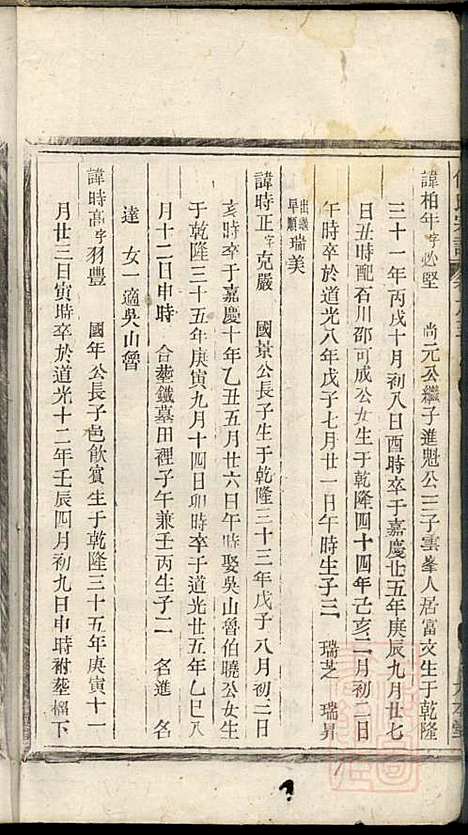 諱柏年 字必堅 尚元公繼子進魁公三子雲峯人居富文生于乾隆
三十一年丙戌十月初八日酉時卒于嘉慶廿五年庚辰九月廿七
日丑時配石川邵可成公女生于乾隆四十四年己亥二月初二日
午時卒於道光八年戊子七月廿一日午時生子三 瑞芝 瑞昇
出繼早順 瑞美
諱時正 字克嚴 國景公長子生于乾隆三十三年戊子八月初三日
亥時卒于嘉慶十年乙丑五月廿六日午時娶吳山魯伯曉公女生
于乾隆三十五年庚寅九月十四日卯時卒于道光廿五年乙巳八
月十二日申時 合塟鐵墓田裡子午兼壬丙生子二 名進 名
達 女一適吳山魯
諱時高 字羽豐 國年公長子邑飲賓生于乾隆三十五年庚寅十一
月廿三日寅時卒於道光十二年壬辰四月初九日申時祔塟橊下